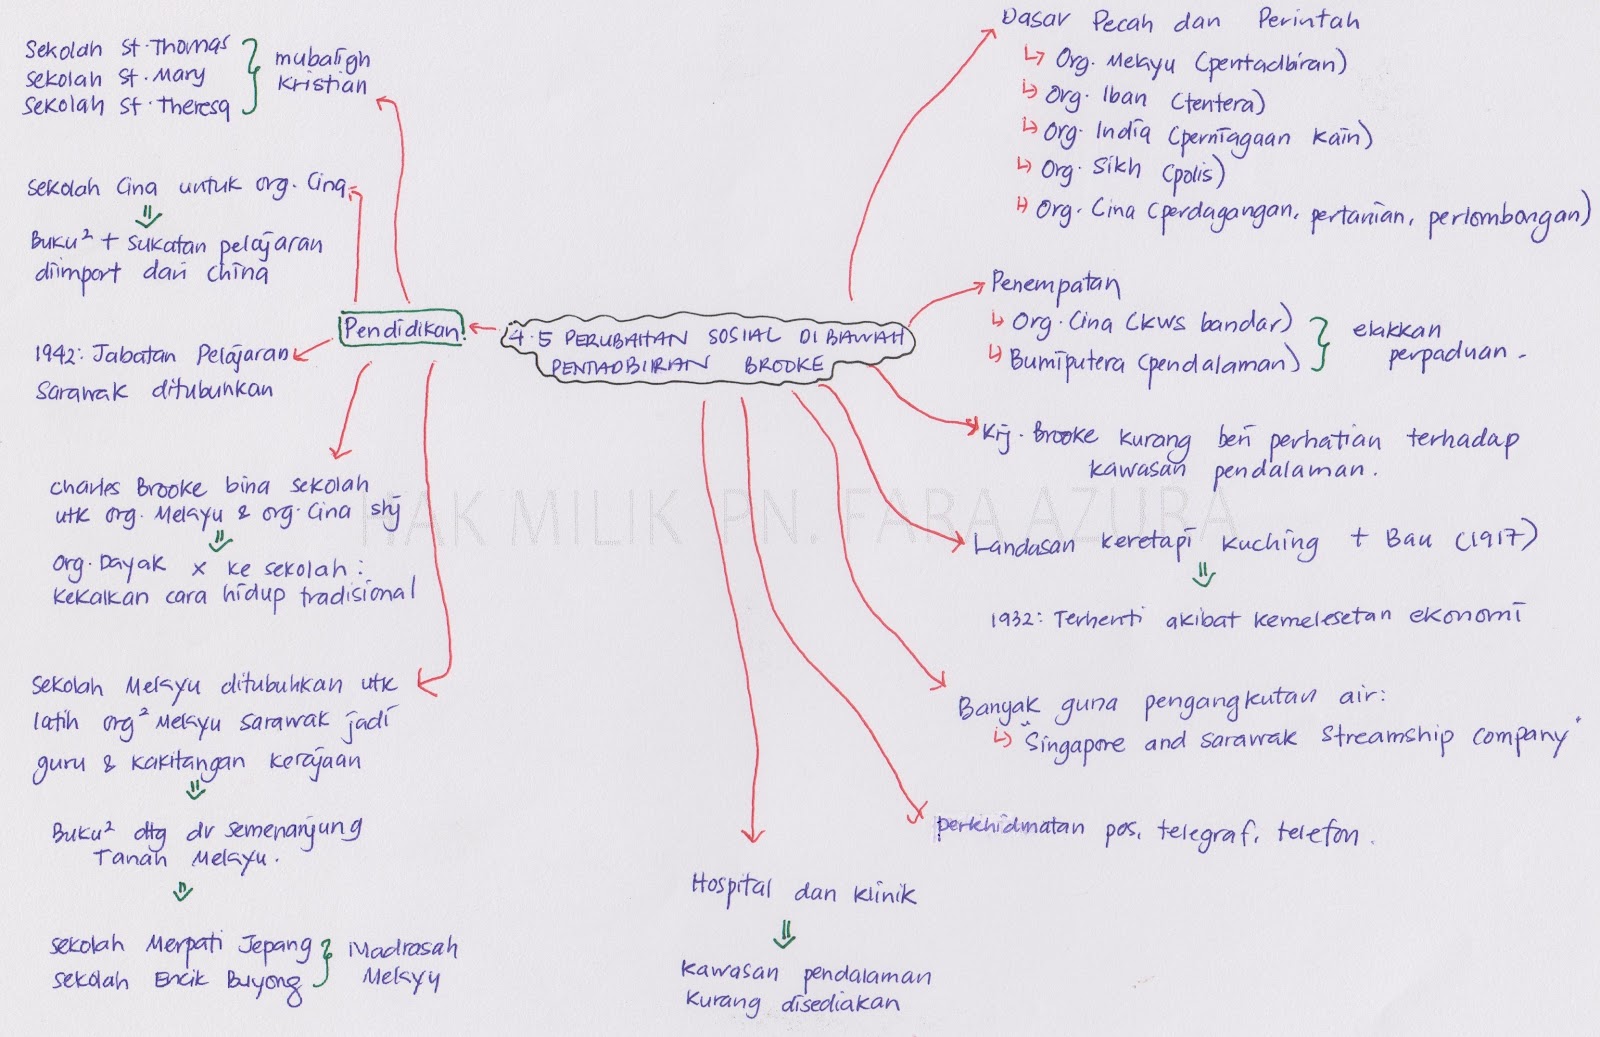 4.5 PERUBAHAN SOSIAL DIBAWAH
PENTADBIRAN BROOKE
Pendidikan
Sekolah St. Thomas
Sekolah St. Mary
Sekolah St. Theresa
mubaligh
Kristian
Sekolah Cina untuk org. Cina
Buku² + sukatan pelajaran
diimport dari China
1942: Jabatan Pelajaran
Sarawak ditubuhkan
Charles Brooke bina sekolah
utk org. Melayu & org. Cina shj
org. Dayak x ke sekolah:
kekalkan cara hidup tradisional
Sekolah Melayu ditubuhkan utk
latih org² Melayu Sarawak jadi
guru & kakitangan kerajaan
Buku² dtg dr Semenanjung
Tanah Melayu.
Sekolah Merpati Jepang
Sekolah Encik Buyong
Madrasah
Melayu
Dasar Pecah dan Perintah
Org. Melayu (pentadbiran)
Org. Iban (tentera)
Org. India (perniagaan kain)
Org. Sikh (polis)
Org. Cina (perdagangan, pertanian, perlombongan)
Penempatan
Org. Cina (kws bandar)
Bumiputera (pendalaman)
elakkan
perpaduan.
Krj. Brooke kurang beri perhatian terhadap
kawasan pendalaman.
Landasan keretapi Kuching + Bau (1917)
1932: Terhenti akibat kemelesetan ekonomi
Banyak guna pengangkutan air:
"Singapore and Sarawak Streamship Company"
perkhidmatan pos, telegraf, telefon.
Hospital dan klinik
kawasan pendalaman
kurang disediakan
HAK MILIK PN. FARA AZURA